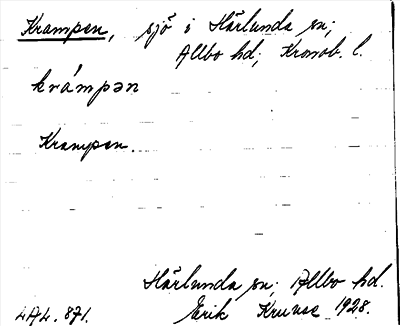 Krampen, sjö i Härlunda sn;
Allbo hd; Kronob. l.
krámpən
Krampen.
Härlunda sn; Allbo hd.
444. 871. Erik Kruuse 1928.